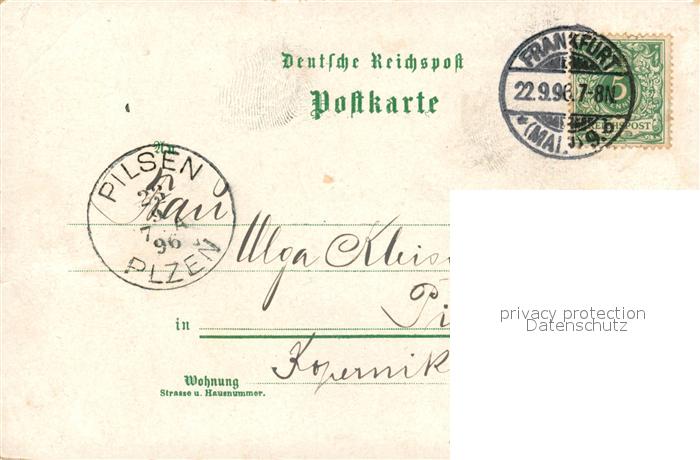 Deutsche Reichspost
Postkarte
FRANKFURT
22.9.96.7-8N.
*(MAIN) 9.b
5
REICHSPOST
An
PILSEN
PLZEŇ
96
Frau
Olga
in Pi
Kopernik
Wohnung
Strasse u. Hausnummer.
privacy protection
Datenschutz